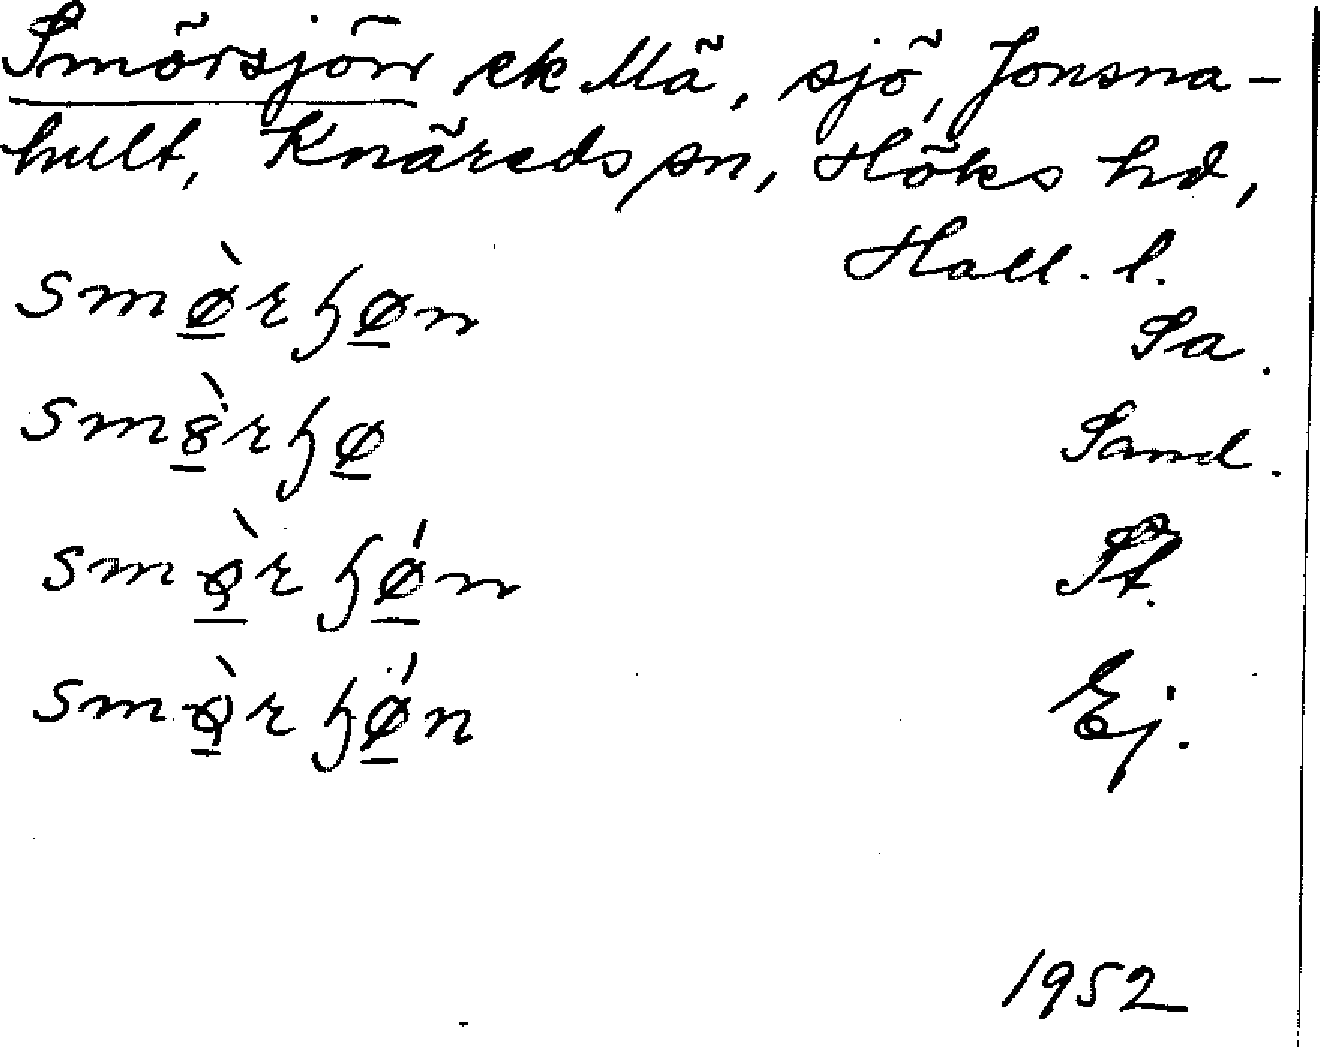 Smörsjön ek Mä, sjö, Jonsna-
hult, Knäreds sn, Höks hd,
Hall. l.
smø̱̀rɧø̱n Sa.
sm8̱̀rɧø̱ Sand.
smǫ̱̀rɧǿ̱n St.
smǫ̱̀rɧǿ̱n Ej.
1952